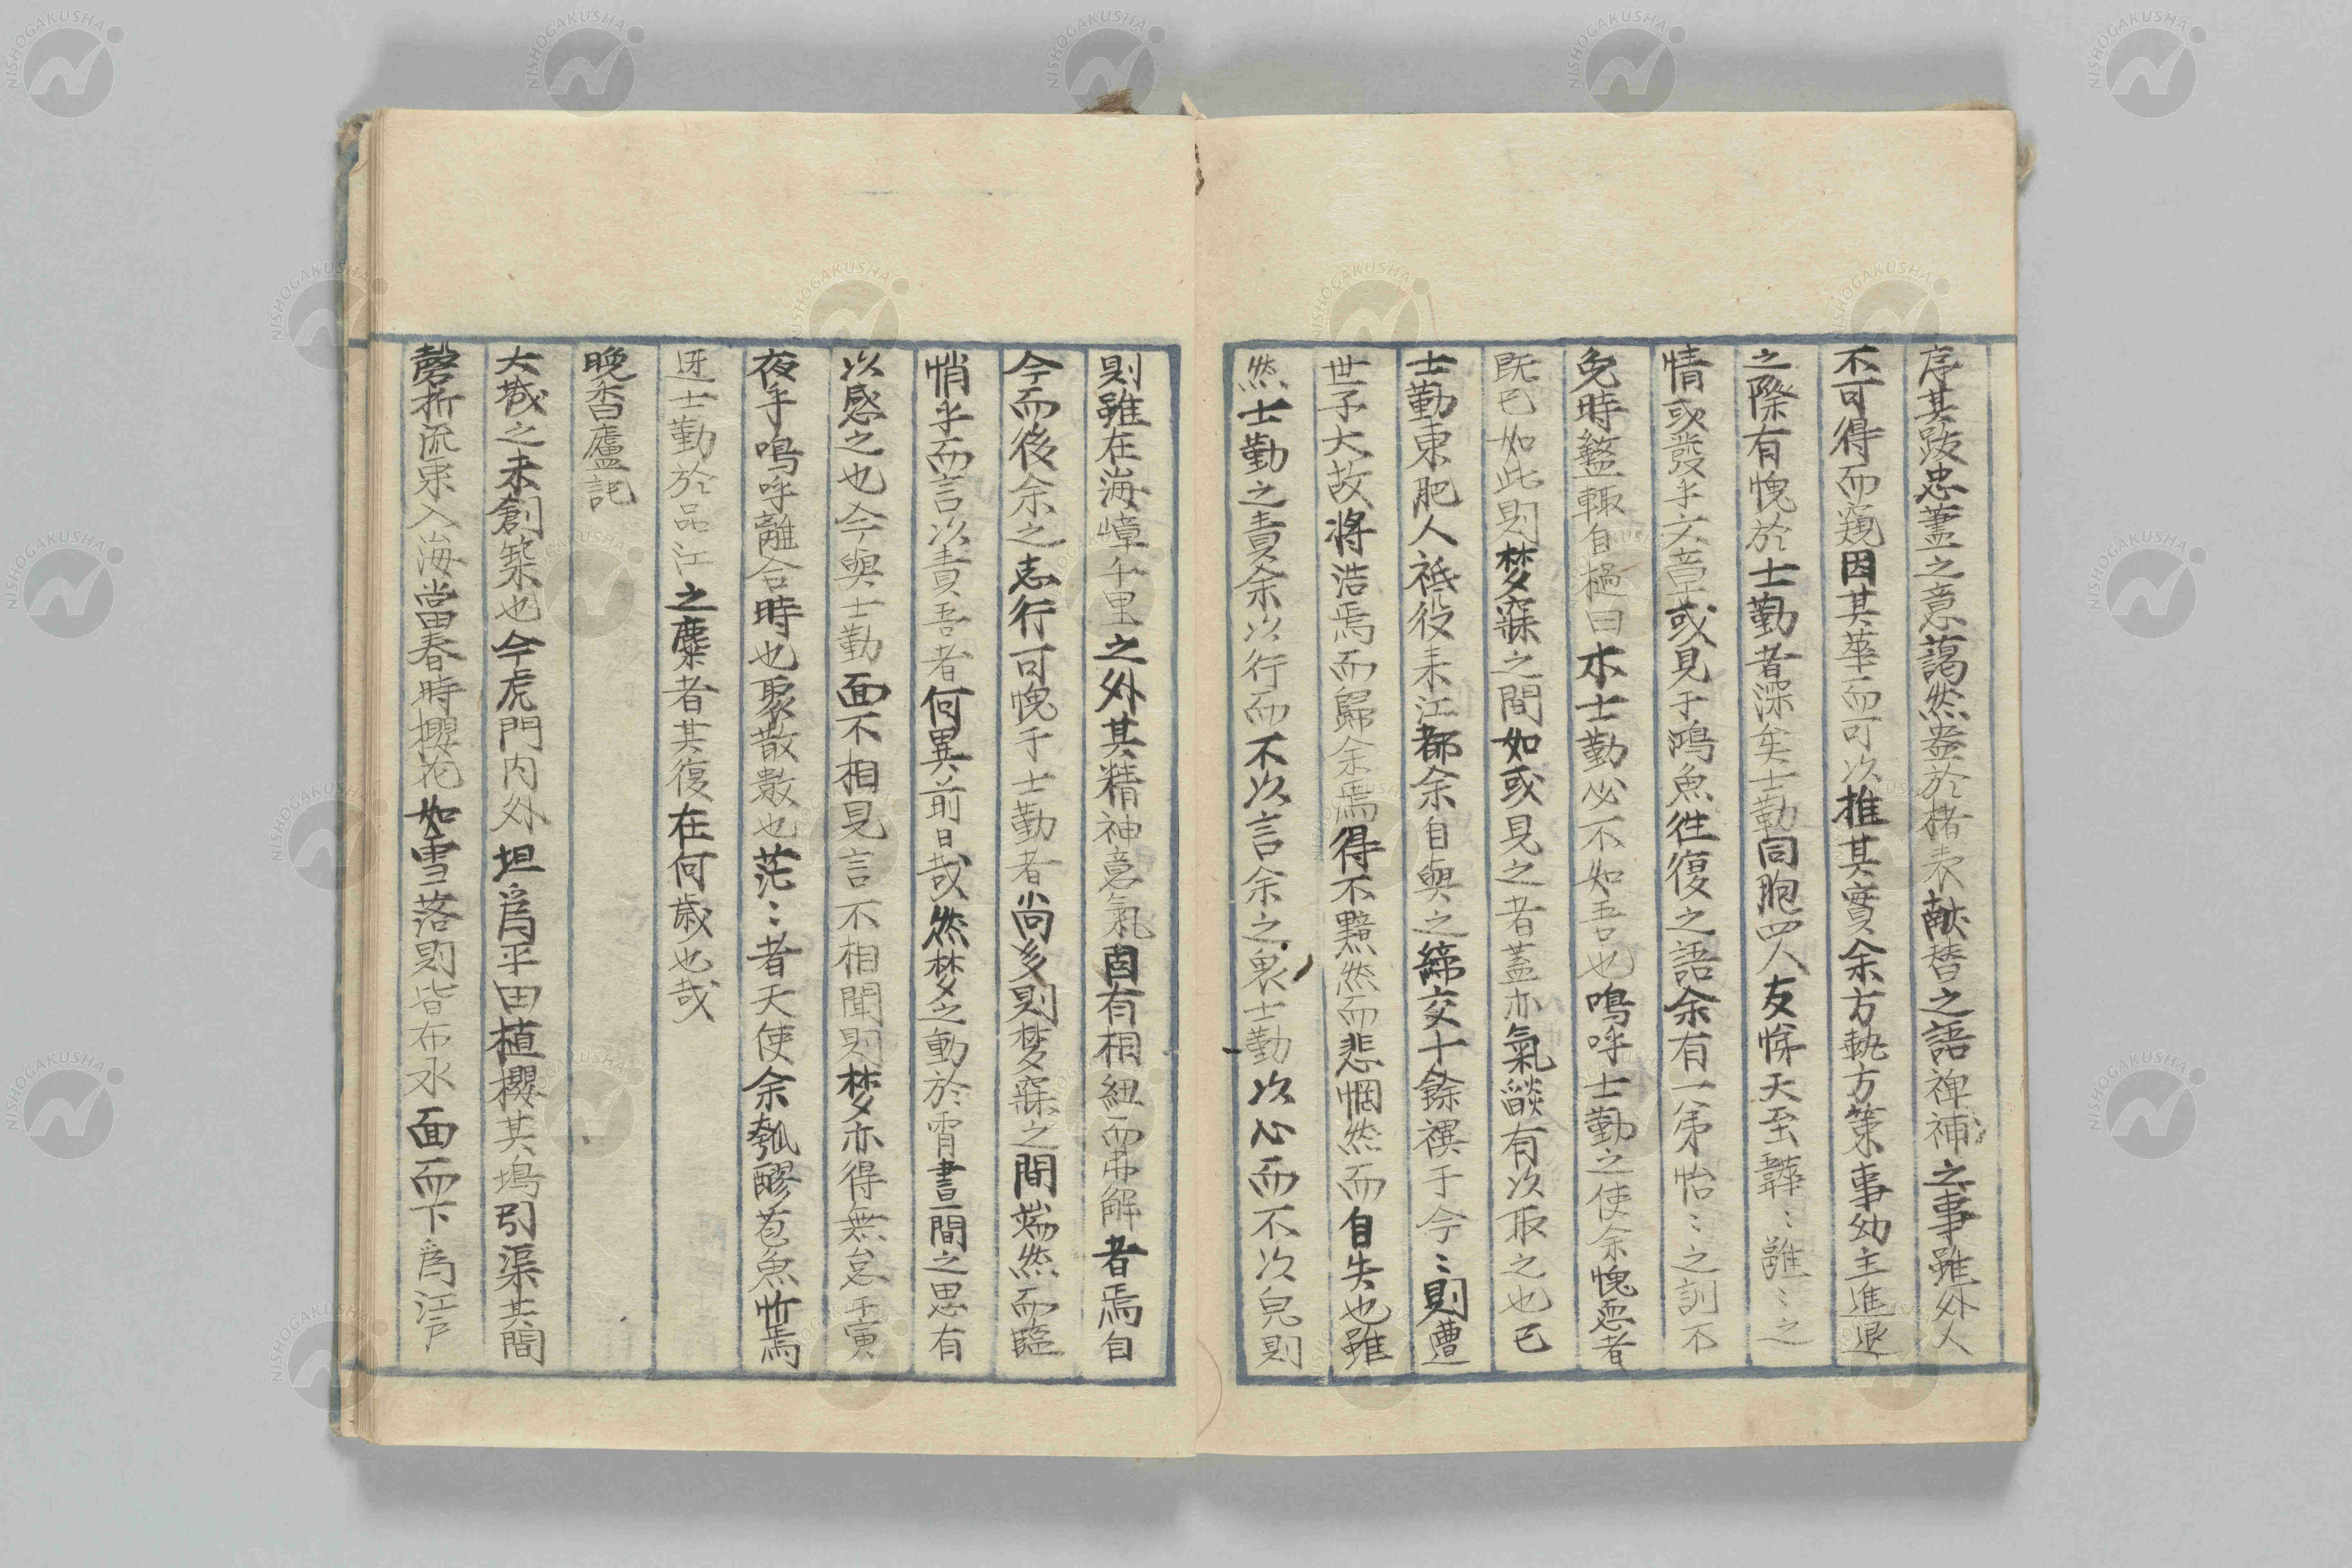 序其跋忠藎之意藹然盎於楮表献替之語裨補之事雖外人
不可得而窺因其華而可以推其實余方執方策事幼主進退
之際有愧於士勤者深矣士勤同胞四人友悌天至韡〻雝〻之
情或發乎文章或見于鴻魚徃復之語余有一弟怡〻之訓不
免時盩輙自撾曰木士勤必不如吾也鳴呼士勤之使余愧恧者
既已如此則梦寐之間如或見之者蓋亦氣燄有以取之也已
士勤東肥人祗役来江都余自與之締交十餘禩于今〻則遭
世子大故将浩焉而歸余焉得不黯然而悲惘然而自失也雖
然士勤之責余以行而不以言余之褱士勤以心而不以皃則
則雖在海嶂千里之外其精神意氣固有相紐而弗解者焉自
今而後余之志行可愧于士勤者尚多則梦寐之間端然而臨
悄乎而言以責吾者何異前日哉然梦之動於宵晝間之思有
以感之也今與士勤面不相見言不相聞則梦亦得無怠乎寅
夜乎鳴呼離合時也聚散数也茫〻者天使余瓠醪苞魚忻焉
迓士勤於品江之麋者其復在何歳也哉
晩香廬記
大城之未創築也今虎門内外坦爲平田植櫻其塢引渠其間
磬折流東入海當春時櫻花如雪落則皆布水面而下爲江戸